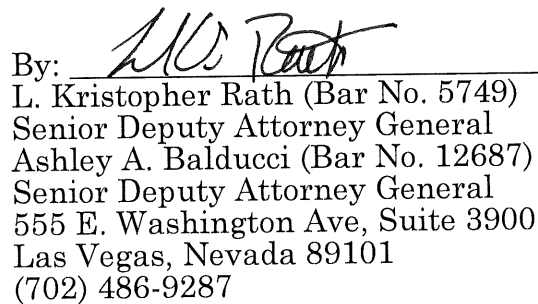 By: LKris Rath
L. Kristopher Rath (Bar No. 5749)
Senior Deputy Attorney General
Ashley A. Balducci (Bar No. 12687)
Senior Deputy Attorney General
555 E. Washington Ave, Suite 3900
Las Vegas, Nevada 89101
(702) 486-9287